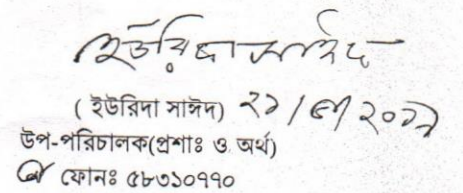 ইউরিদা সাঈদ
(ইউরিদা সাঈদ) ২১/৫/২০১৯
উপ-পরিচালক(প্রশাঃ ও অর্থ)
ফোনঃ ৫৮৩১০৭৭০